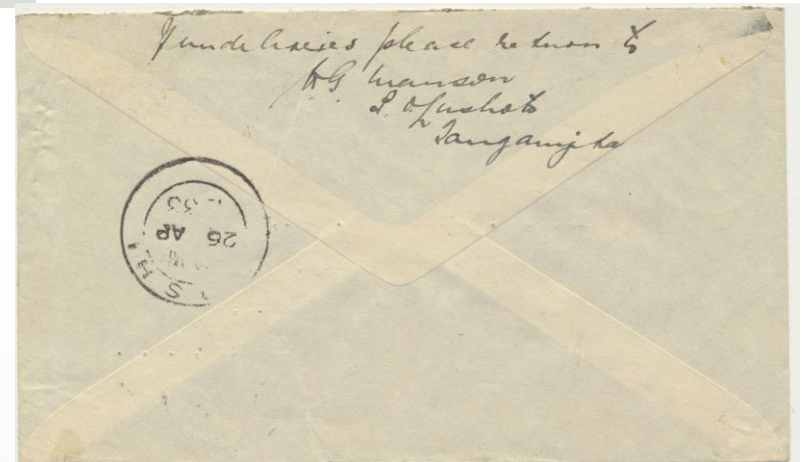 If undelivered please return to
H G Manson
P. O Lushoto
Tanganyika
SHI
26 AP
33